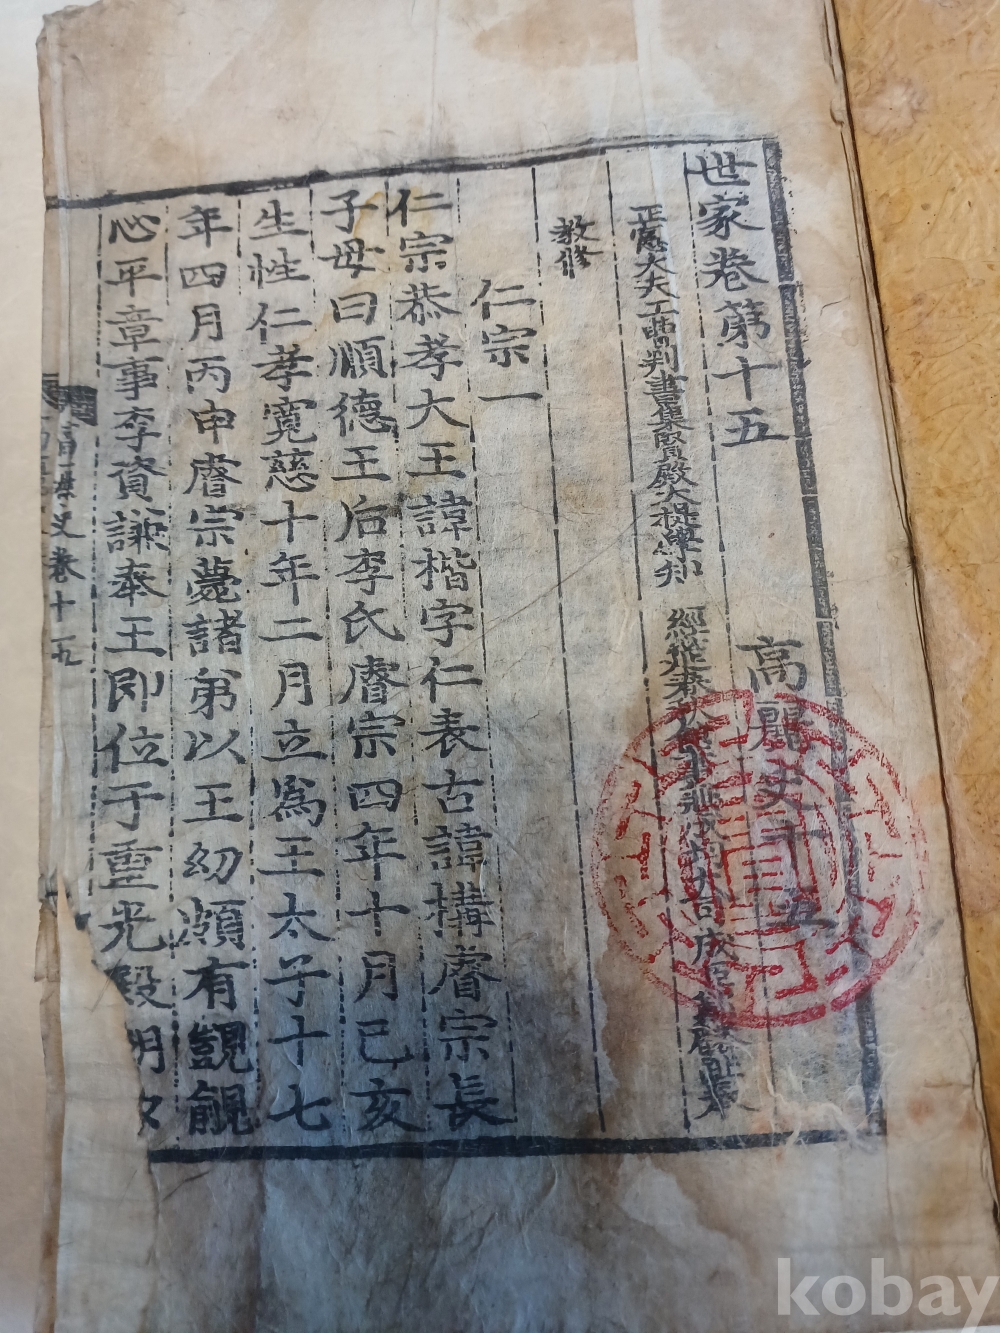 世家卷第十五 高麗史十五
正憲大夫工曹判書集賢殿大提學知 經筵春秋館事兼成均大司成臣鄭麟趾奉
教修
仁宗一
仁宗恭孝大王諱楷字仁表古諱構睿宗長
子母曰順德王后李氏睿宗四年十月己亥
生性仁孝寬慈十年二月立爲王太子十七
年四月丙申睿宗薨諸弟以王幼頗有覬覦
心平章事李資謙奉王即位于重光殿明
高麗史卷十五
kobay